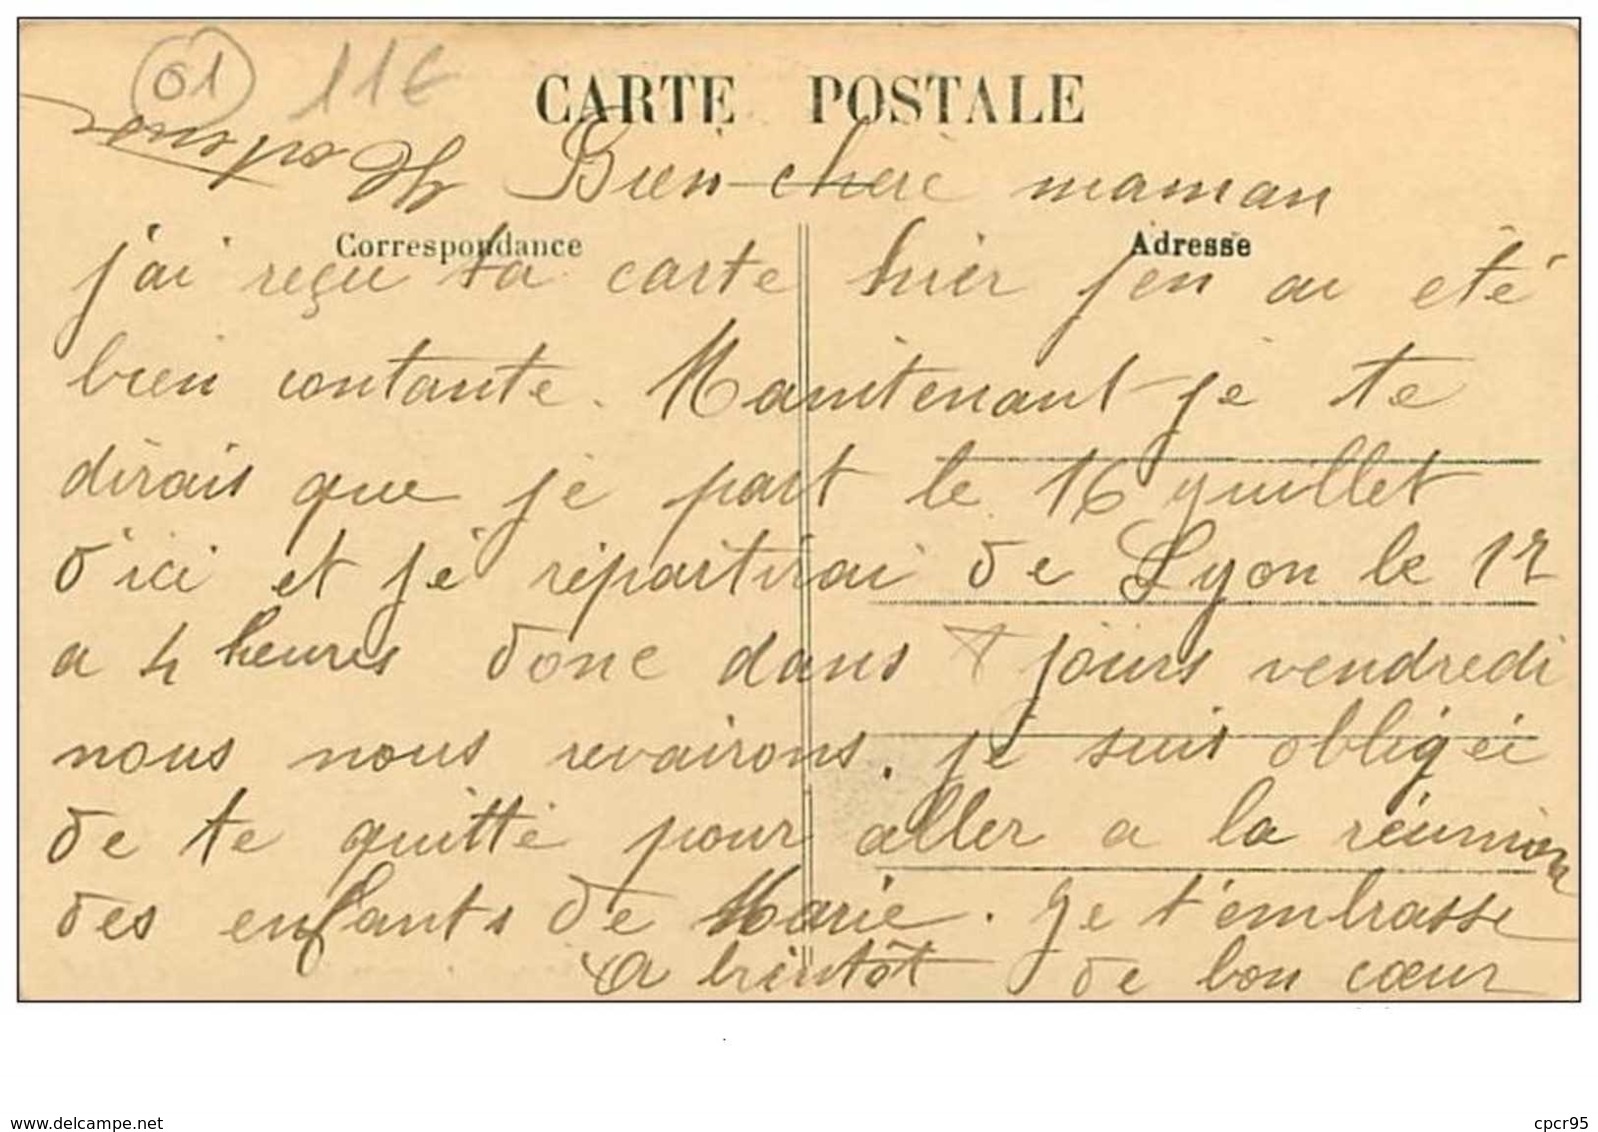 01 11€
CARTE POSTALE
Bien chère maman
Correspondance Adresse
j'ai reçu ta carte hier j'en ai été
bien contante. Manitenant je te
dirais que je part le 16 juillet
d'ici et je répartirai de Lyon le 17
a 4 heures donc dans 8 jours vendredi
nous nous revairons. je suis obligéi
de te quitté pour aller a la réunion
des enfants de Marie. Je t'embrasse
A bientôt de bon cœur
www.delcampe.net cpcr95